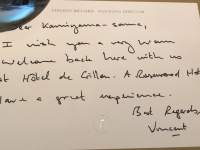 Dear Kamiyama-sama,
I wish you a very warm
welcome back here with us
at Hôtel de Crillon. A Rosewood Hotel
Have a great experience.
Best Regards,
Vincent